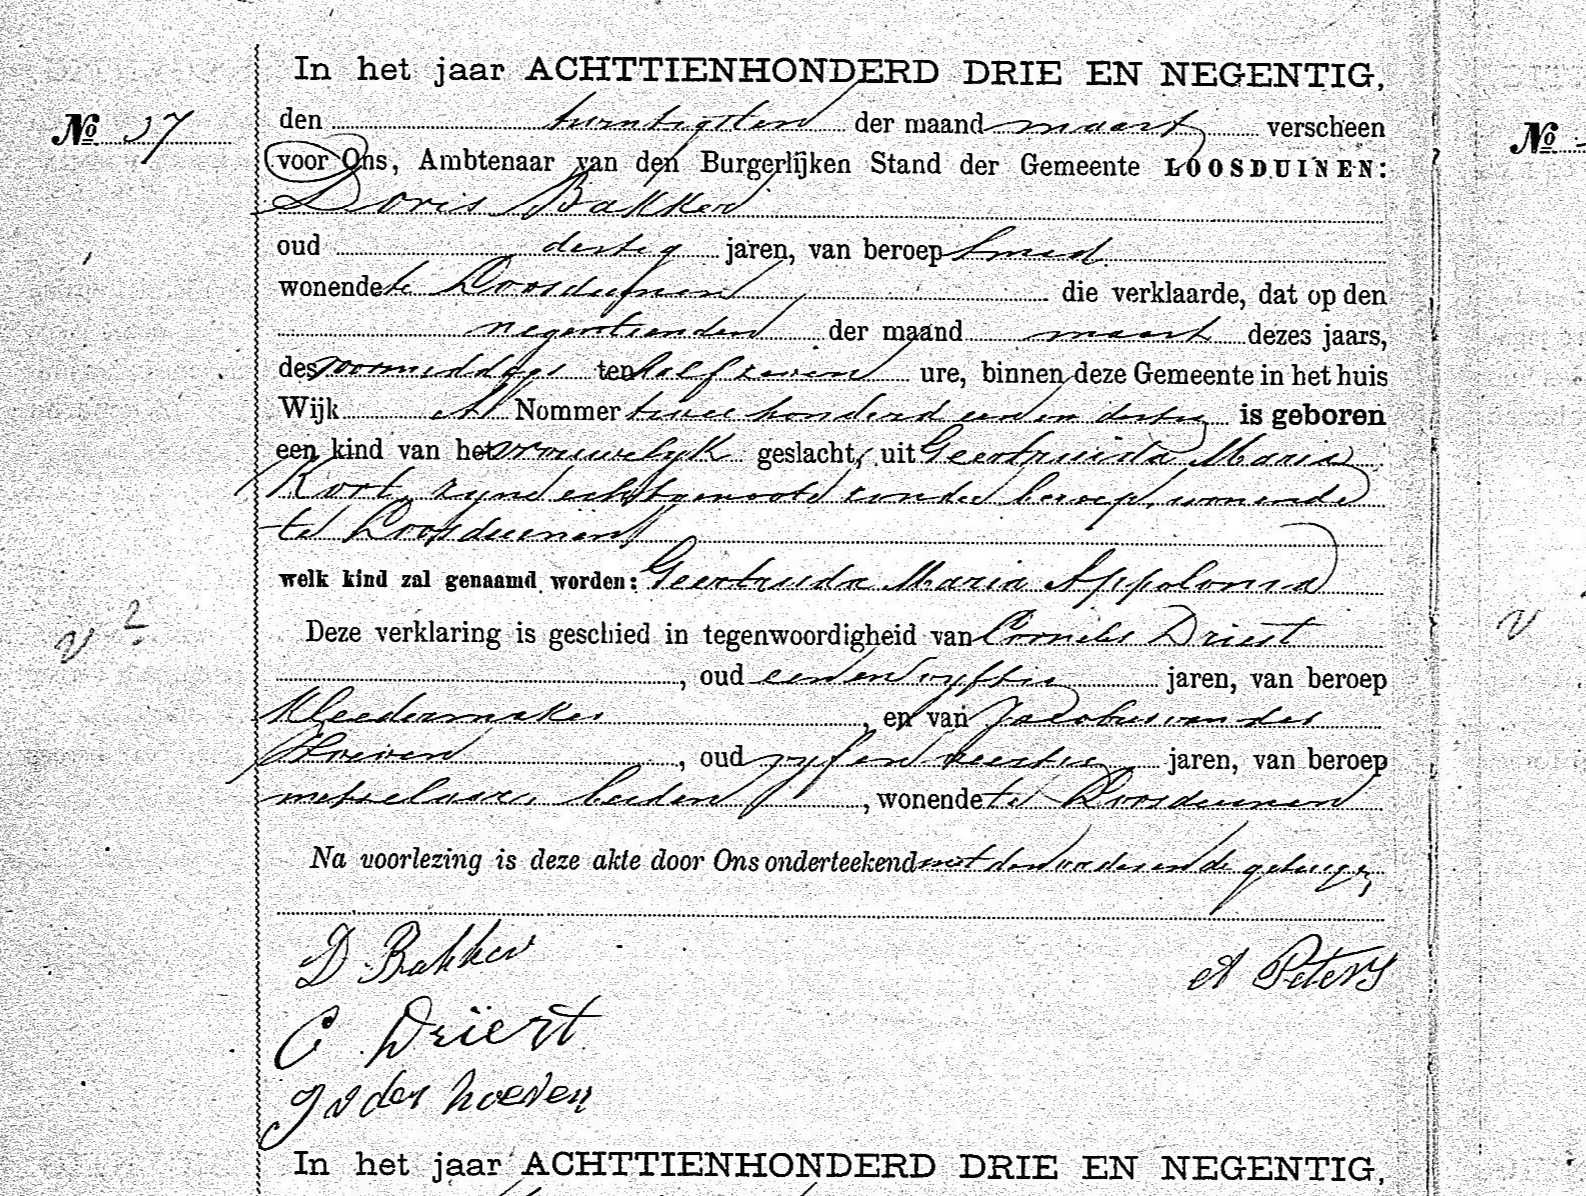 In het jaar ACHTTIENHONDERD DRIE EN NEGENTIG,
No 37
den twintigsten der maand maart verscheen
voor Ons, Ambtenaar van den Burgerlijken Stand der Gemeente LOOSDUINEN:
Doris Bakker
oud dertig jaren, van beroep smid
wonende te Loosduinen die verklaarde, dat op den
negentienden der maand maart dezes jaars,
des voormiddags ten half zeven ure, binnen deze Gemeente in het huis
Wijk A Nommer twee honderd een en dertig is geboren
een kind van het vrouwelijk geslacht, uit Geertruida Maria
Kort, zijne echtgenoote zonder beroep, wonende
te Loosduinen
welk kind zal genaamd worden: Geertruida Maria Appolonia
Deze verklaring is geschied in tegenwoordigheid van Cornelis Driest
, oud een en vijftig jaren, van beroep
Kleedermaker, en van Jacobus van der
Hoeven, oud vijf en veertig jaren, van beroep
metselaar, beiden, wonende te Loosduinen
Na voorlezing is deze akte door Ons onderteekend met den vader en de getuigen
D Bakker
A Peters
C Driest
J v der hoeven
In het jaar ACHTTIENHONDERD DRIE EN NEGENTIG,
No
v 2
v